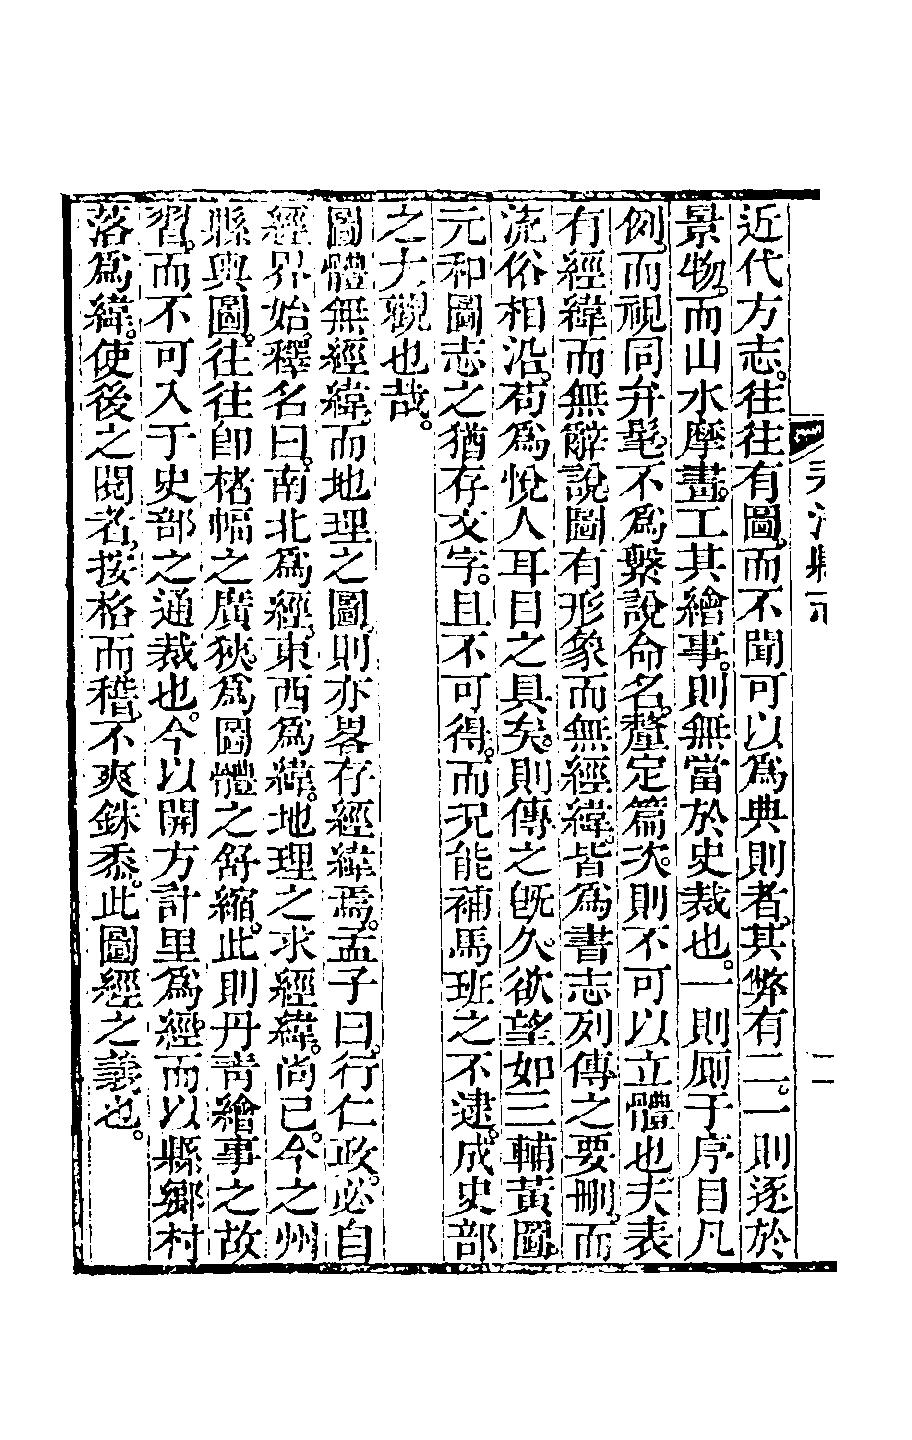 近代方志。往往有圖。而不聞可以爲典則者。其弊有二。一則逐於
景物。而山水摩畫。工其繪事。則無當於史裁也。一則厠于序目凡
例。而視同弁髦。不爲繫說命名。釐定篇次。則不可以立體也夫表
有經緯而無辭說圖有形象而無經緯。皆爲書志列傳之要刪。而
流俗相沿。苟爲悅人耳目之具矣。則傳之旣久。欲望如三輔黃圖。
元和圖志之猶存文字。且不可得。而況能補馬班之不逮。成史部
之大觀也哉。
圖體無經緯。而地理之圖。則亦畧存經緯焉。孟子曰。行仁政。必自
經界始。釋名曰。南北爲經。東西爲緯。地理之求經緯。尚已。今之州
縣輿圖。往往卽楮幅之廣狹。爲圖體之舒縮。此則丹青繪事之故
習。而不可入于史部之通裁也。今以開方計里爲經。而以縣鄉村
落爲緯。使後之閱者。按格而稽。不爽銖黍。此圖經之義也。
二